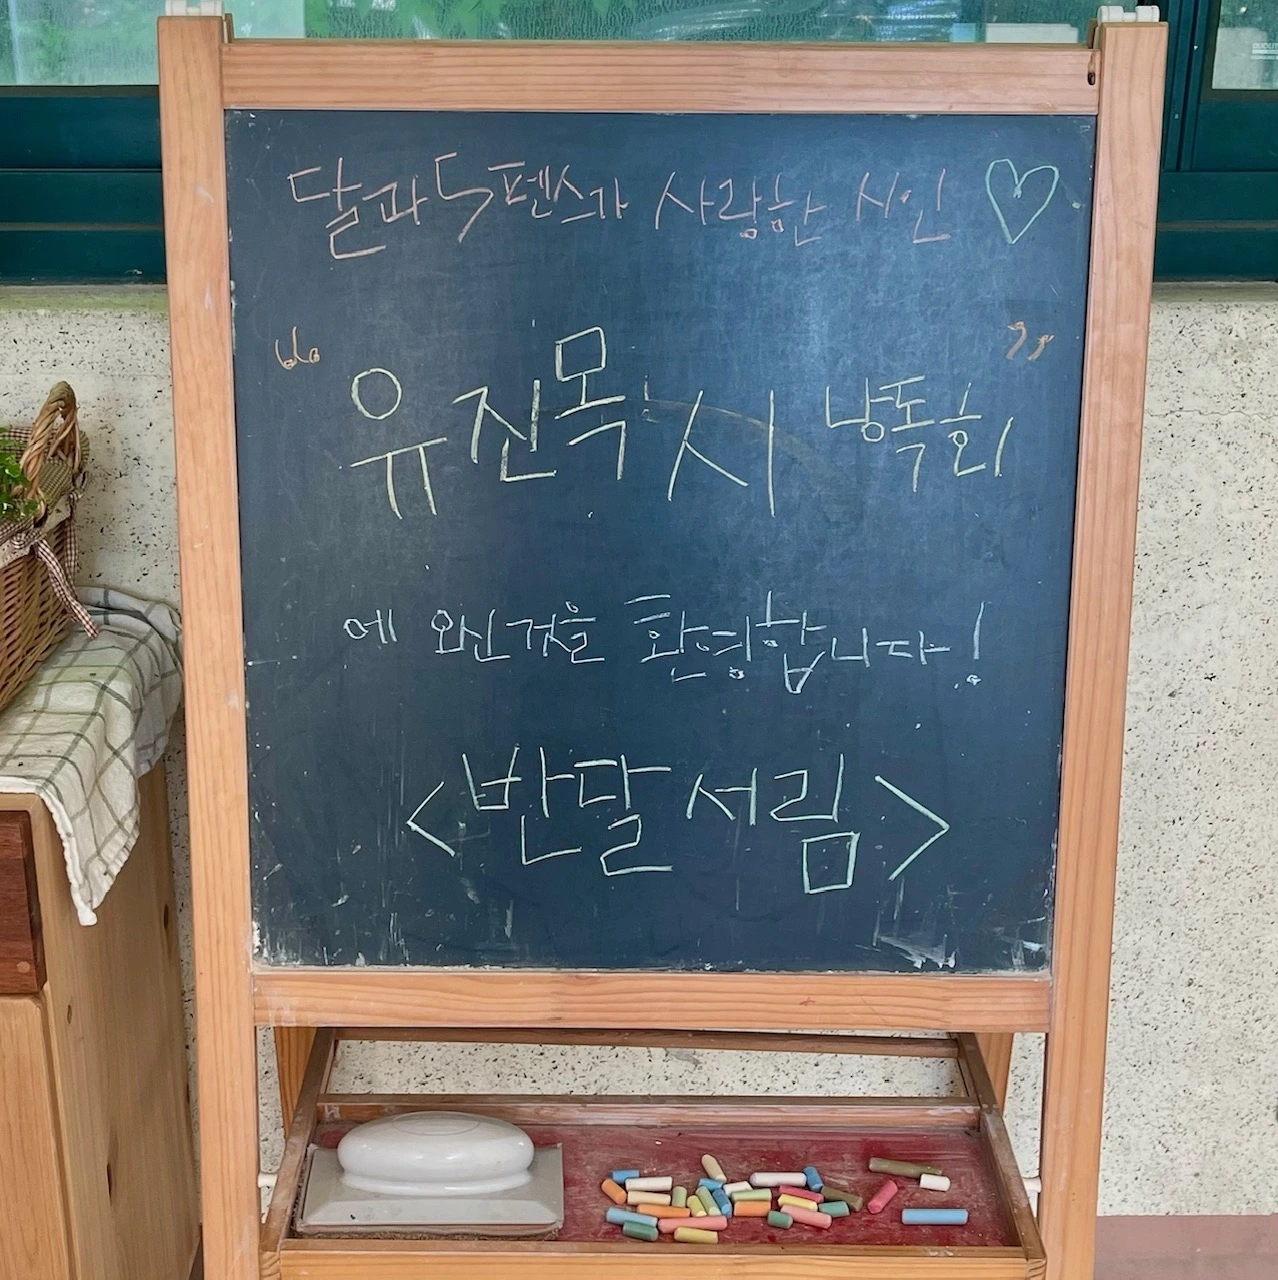 달과 5펜스가 사랑한 시인 ♡
“유진목 시 낭독회”
에 오신 것을 환영합니다!
<반달 서림>